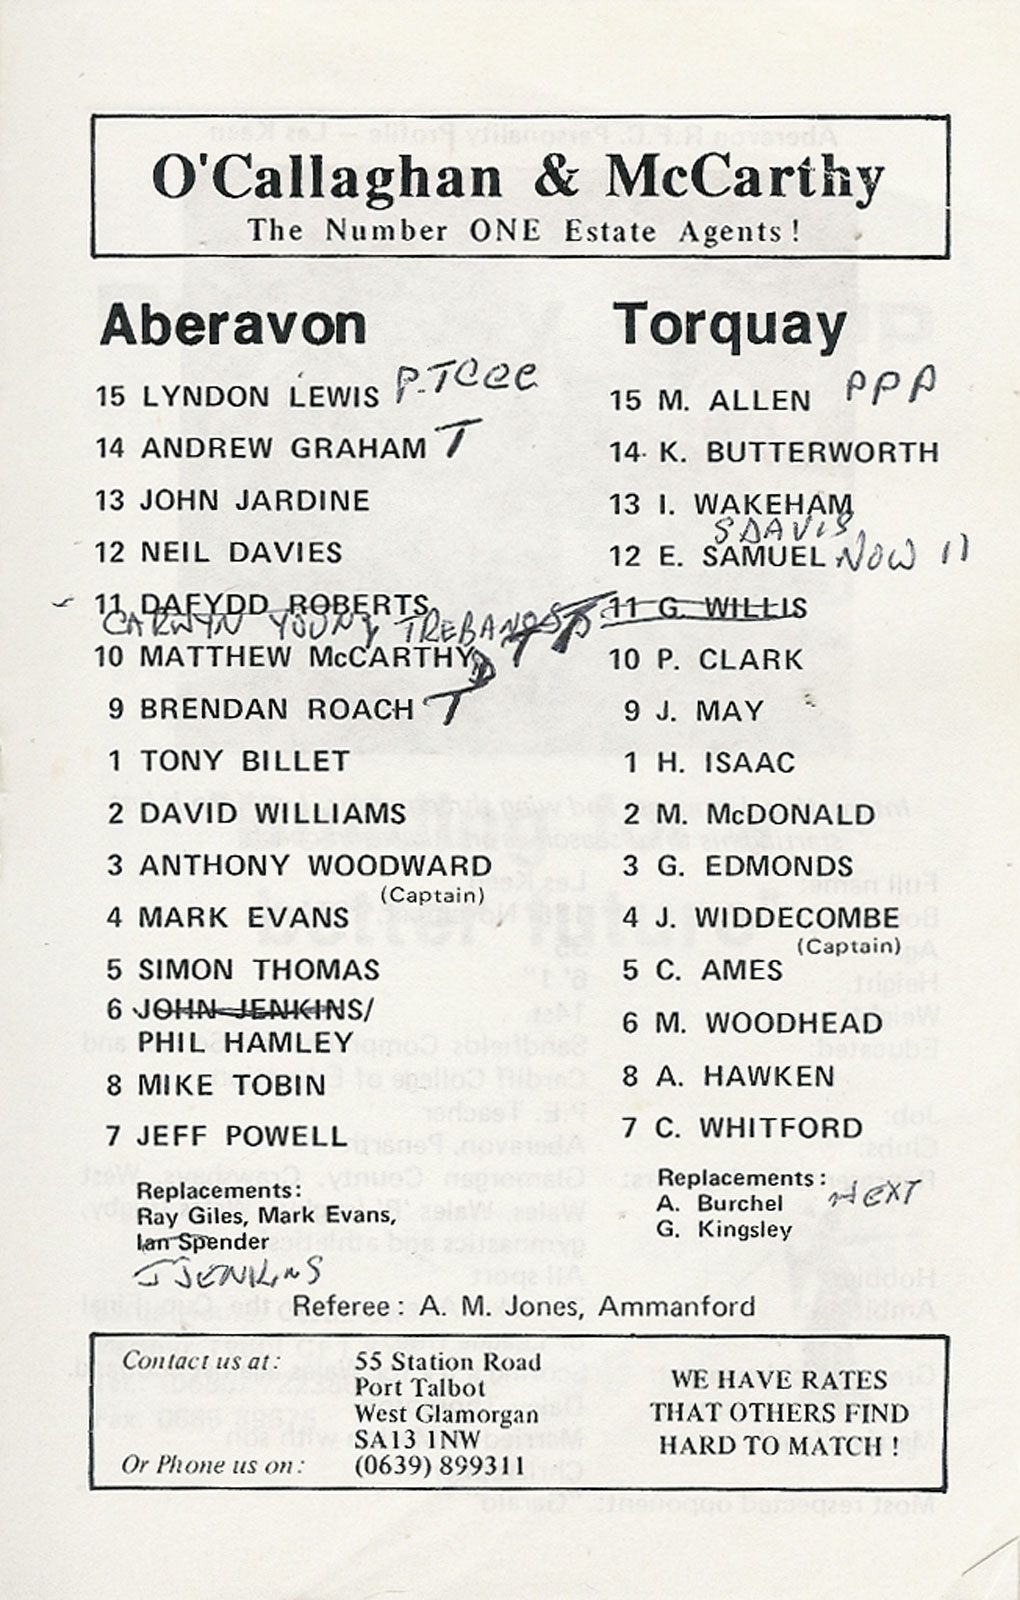 O'Callaghan & McCarthy
The Number ONE Estate Agents!
Aberavon
15 LYNDON LEWIS P.TCCC
14 ANDREW GRAHAM T
13 JOHN JARDINE
12 NEIL DAVIES
11 DAFYDD ROBERTS
CARWYN YOUNG TREBANOS T T
10 MATTHEW McCARTHY D
9 BRENDAN ROACH T
1 TONY BILLET
2 DAVID WILLIAMS
3 ANTHONY WOODWARD
(Captain)
4 MARK EVANS
5 SIMON THOMAS
6 JOHN JENKINS/
PHIL HAMLEY
8 MIKE TOBIN
7 JEFF POWELL
Replacements:
Ray Giles, Mark Evans,
Ian Spender
J JENKINS
Torquay
15 M. ALLEN PPP
14 K. BUTTERWORTH
13 I. WAKEHAM
S DAVIS
12 E. SAMUEL NOW 11
11 G. WILLIS
10 P. CLARK
9 J. MAY
1 H. ISAAC
2 M. McDONALD
3 G. EDMONDS
4 J. WIDDECOMBE
(Captain)
5 C. AMES
6 M. WOODHEAD
8 A. HAWKEN
7 C. WHITFORD
Replacements:
A. Burchel NEXT
G. Kingsley
Referee: A. M. Jones, Ammanford
Contact us at: 55 Station Road
Port Talbot
West Glamorgan
SA13 1NW
Or Phone us on: (0639) 899311
WE HAVE RATES
THAT OTHERS FIND
HARD TO MATCH!